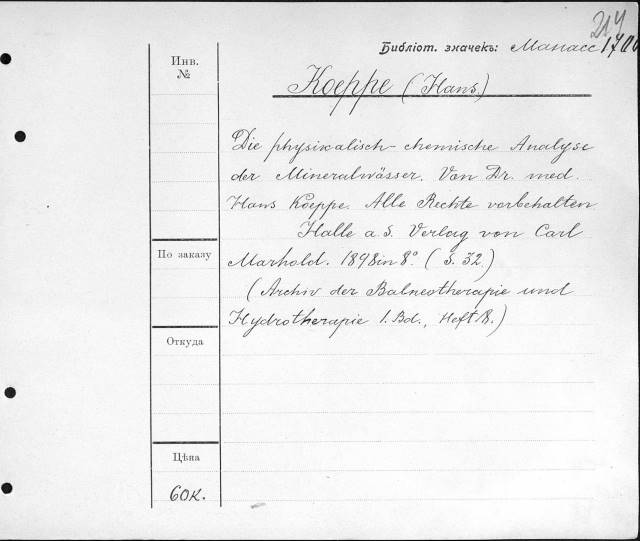 214
Библіот. значекъ: Манасс 1706
Инв.
№
Koeppe (Hans.)
Die physikalisch-chemische Analyse
der Mineralwässer. Von Dr. med.
Hans Koeppe. Alle Rechte vorbehalten
Halle a. S. Verlag von Carl
Marhold. 1898 in 8° (S. 32.)
(Archiv der Balneotherapie und
Hydrotherapie 1. Bd., Heft 8.)
По заказу
Откуда
Цѣна
60к.